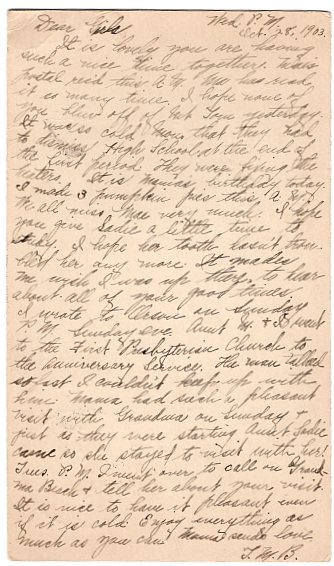 Wed. P.M.
Oct. 28, 1903.
Dear Girls
It is lovely you are having
such a nice time together. Mae's
postal recd this A.M. Ma has read
it so many time. I hope none of
you blew off of Mt Tom yesterday.
It was so cold Mon. that they had
to dismiss High School at the end of
the first period. They were fixing the
heaters. It is Mamas birthday today
I made 3 pumpkin pies this A.M.
We all miss Mae very much. I hope
you give Sadie a little time to
study. I hope her tooth hasn't troub-
led her any more. It makes
me wish I was up there to hear
about all of your good times.
I wrote to on Sunday
P.M. Sunday eve. Aunt M. & I went
to the First Presbyterian Church to
the Anniversary Service. The man talked
so fast I couldn't keep up with
him. Mama had such a pleasant
visit with Grandma on Sunday &
just as they were starting Aunt Sadie
came so she stayed to visit with her!
Tues. P.M. I went over to call on Grand-
ma Beach & tell her about your visit
It is nice to have it pleasant even
if it is cold. Enjoy everything as
much as you can Mama sends love
T.M.B.